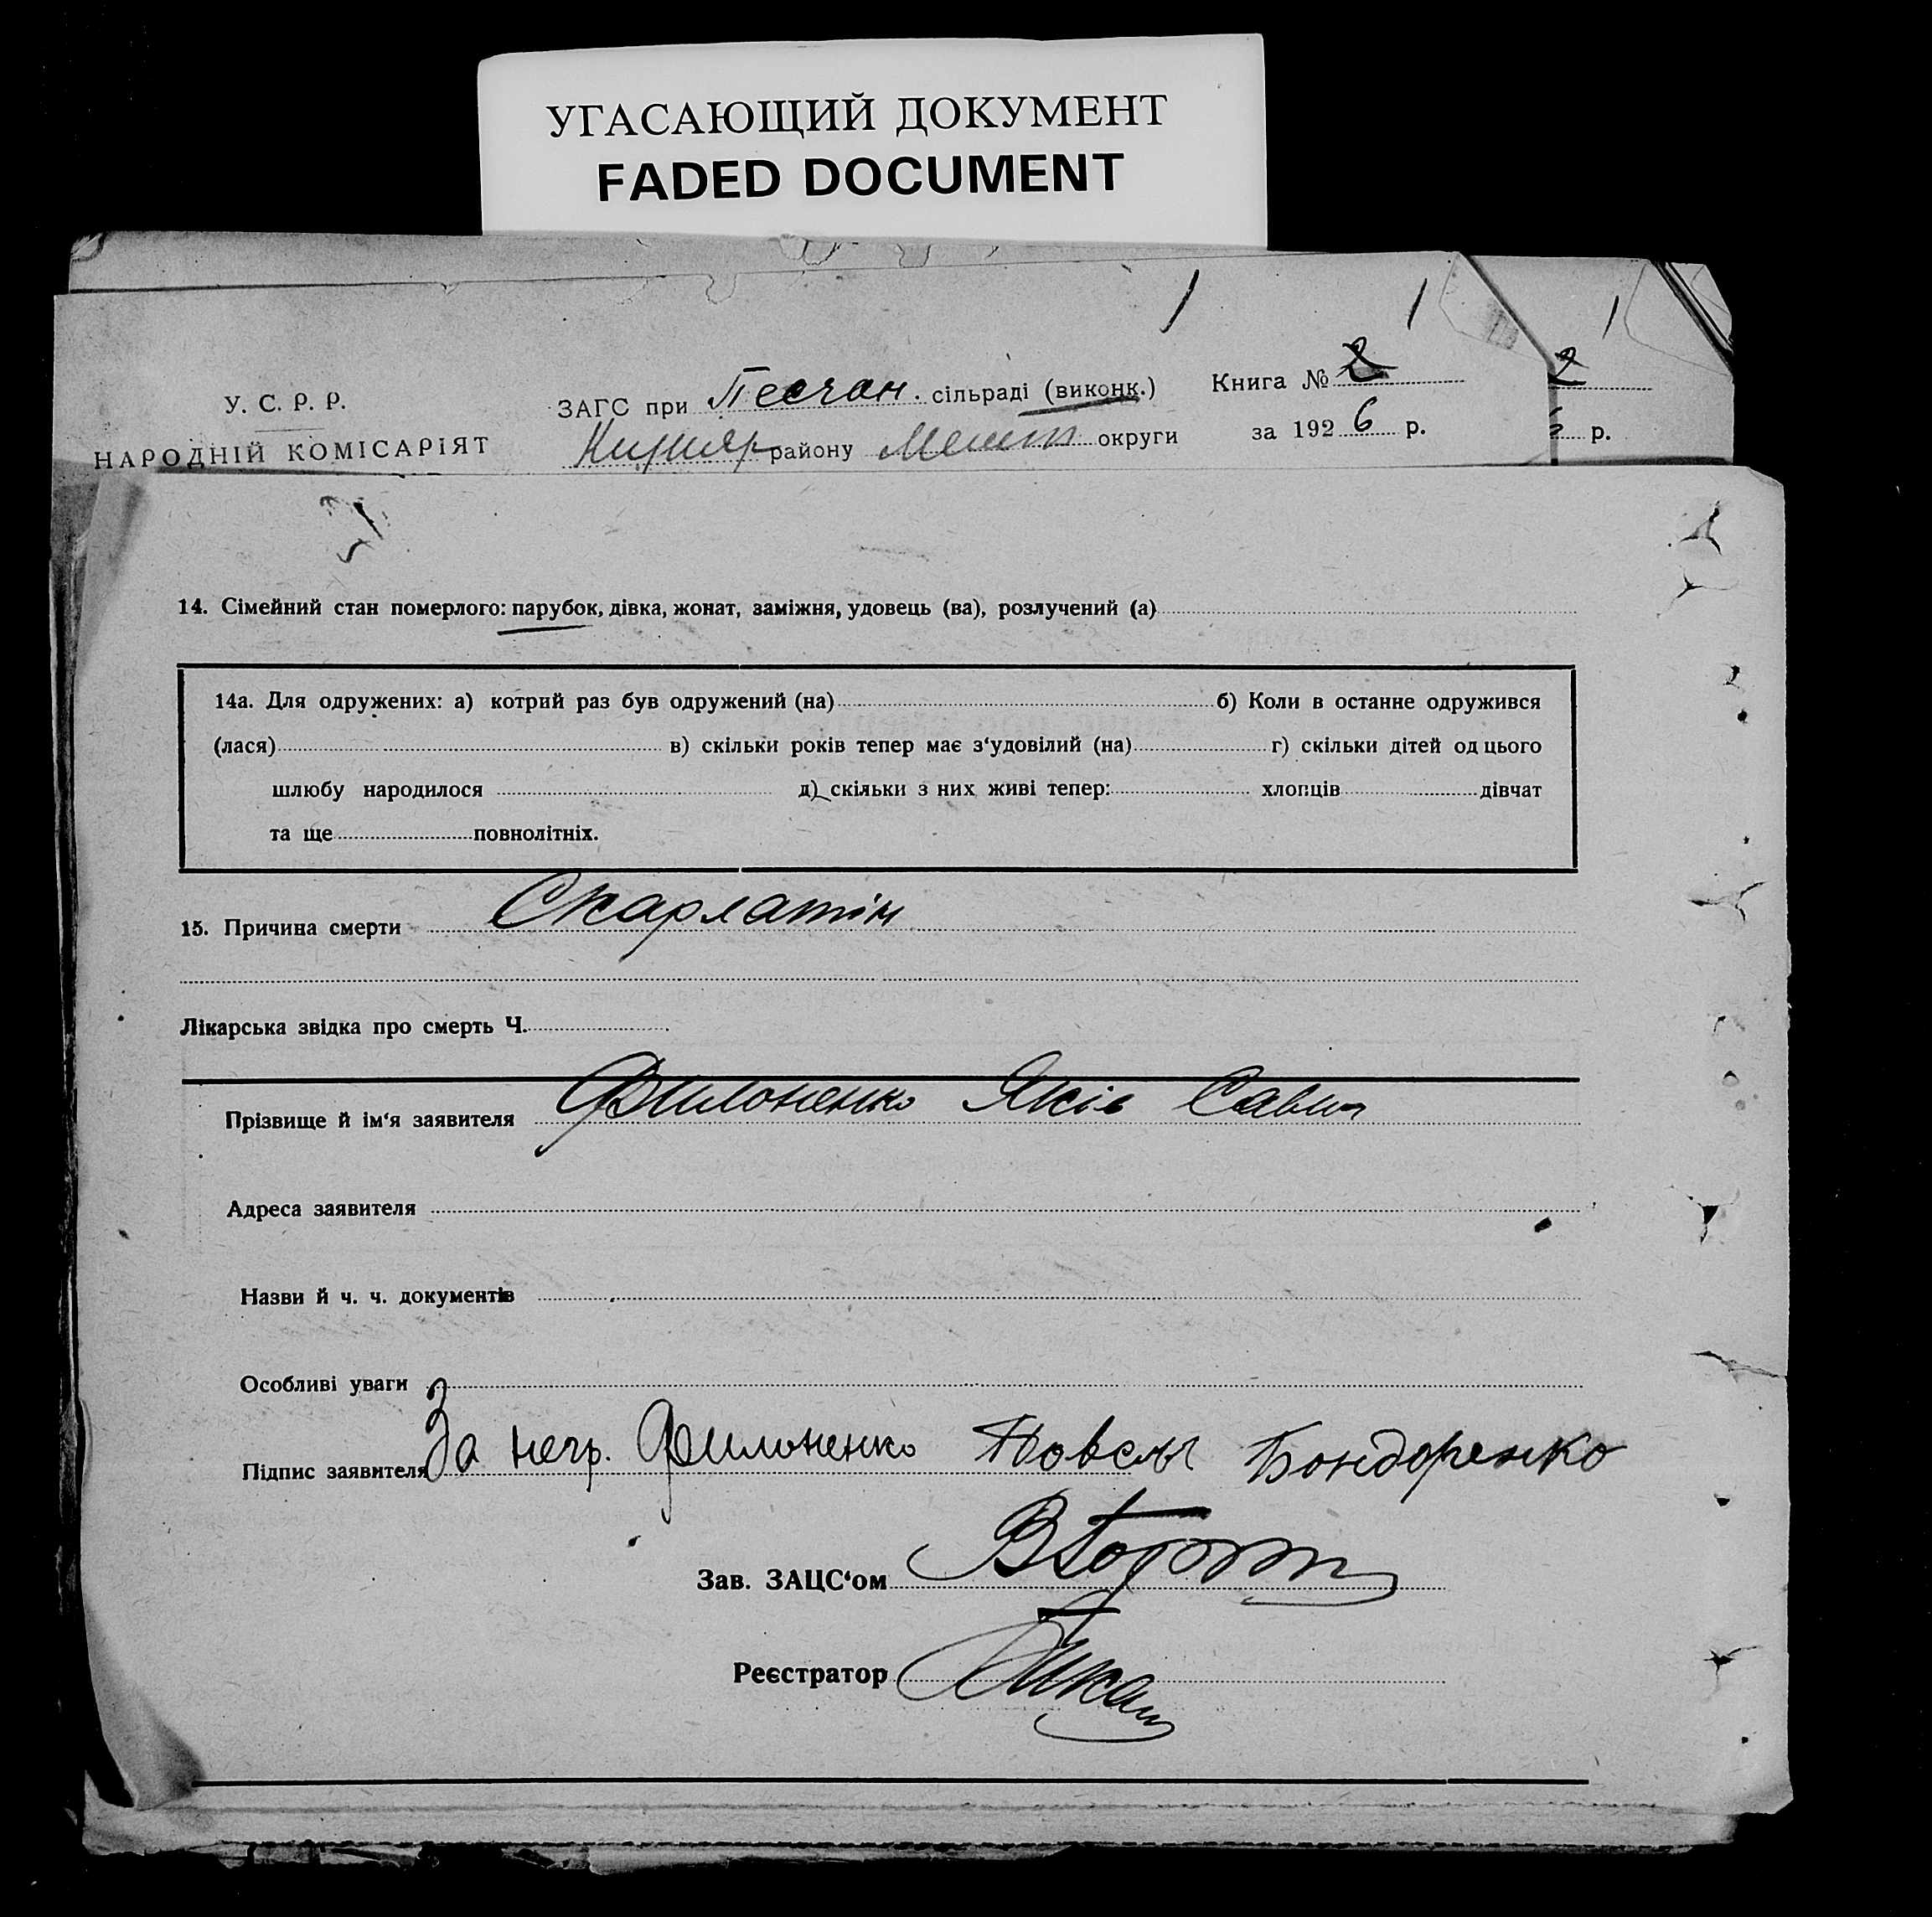 УГАСАЮЩИЙ ДОКУМЕНТ
FADED DOCUMENT
У. С. Р. Р.
НАРОДНІЙ КОМІСАРІЯТ
ЗАГС при Песчан. сільраді (виконк.)
району округи
Книга № 2
за 1926 р.
2
р.
14. Сімейний стан померлого: парубок, дівка, жонат, заміжня, удовець (ва), розлучений (а)
14а. Для одружених: а) котрий раз був одружений (на) б) Коли в останне одружився
(лася) в) скільки років тепер має з‘удовілий (на) г) скільки дітей од цього
шлюбу народилося д) скільки з них живі тепер: хлопців дівчат
та ще повнолітніх.
15. Причина смерти Скарлатін
Лікарська звідка про смерть Ч.
Прізвище й ім‘я заявителя Филоненко Яків Савич
Адреса заявителя
Назви й ч. ч. документів
Особливі уваги
Підпис заявителя За негр. Филоненко Бондаренко
Зав. ЗАЦС‘ом
Реєстратор